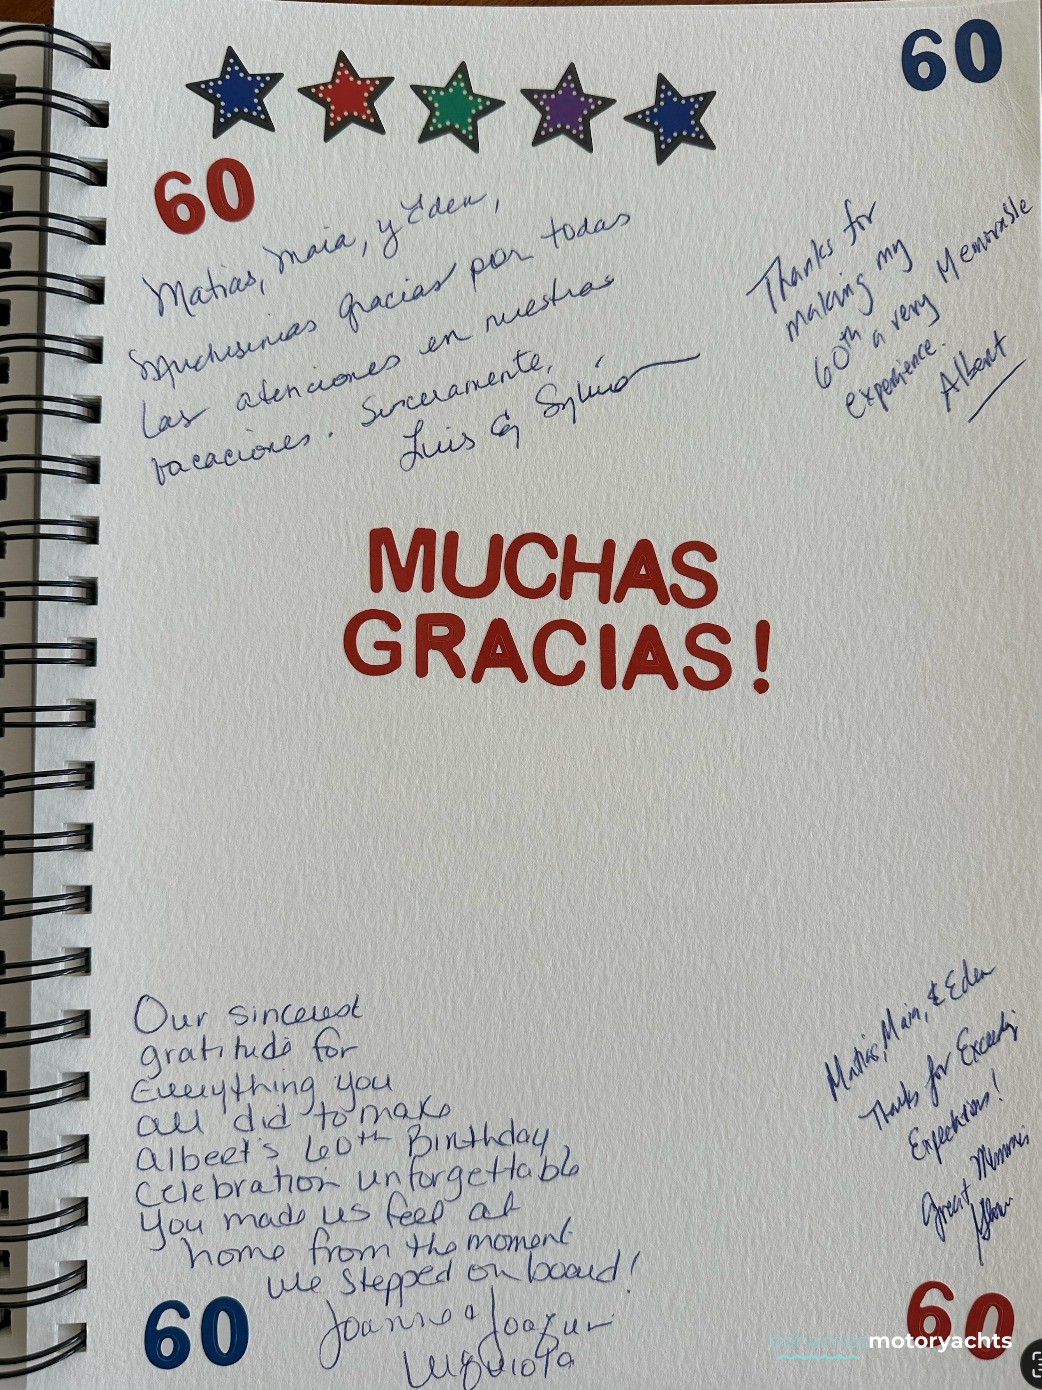 60
60
Matias, Maia, y Eden,
Muchisimas gracias por todas
las atenciones en nuestras
vacaciones. Sinceramente,
Luis & Sylvia
Thanks for
making my
60th a very Memorable
Experience.
Albert
MUCHAS
GRACIAS!
Our sincerest
gratitude for
Everything you
all did to make
Albert's 60th Birthday
Celebration unforgettable
You made us feel at
home from the moment
we stepped on board!
Joanne & Joaquin
Matias, Maia, & Eden
Thanks for Exceeding
Expectations!
Great Memories
60
60
motoryachts